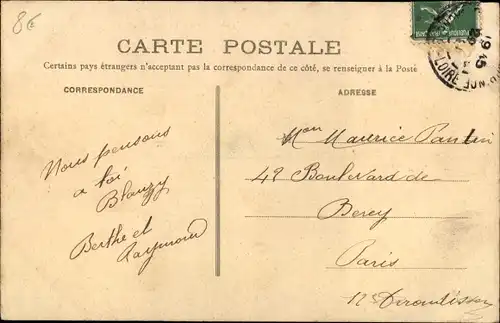 8€
CARTE POSTALE
Certains pays étrangers n'acceptant pas la correspondance de ce côté, se renseigner à la Poste
CORRESPONDANCE
ADRESSE
Nous pensons
a toi
Blanzy
Berthe et
Raymond
Maurice
42 Boulevard de
Bercy
Paris
12e Arrondissem
LOIRE